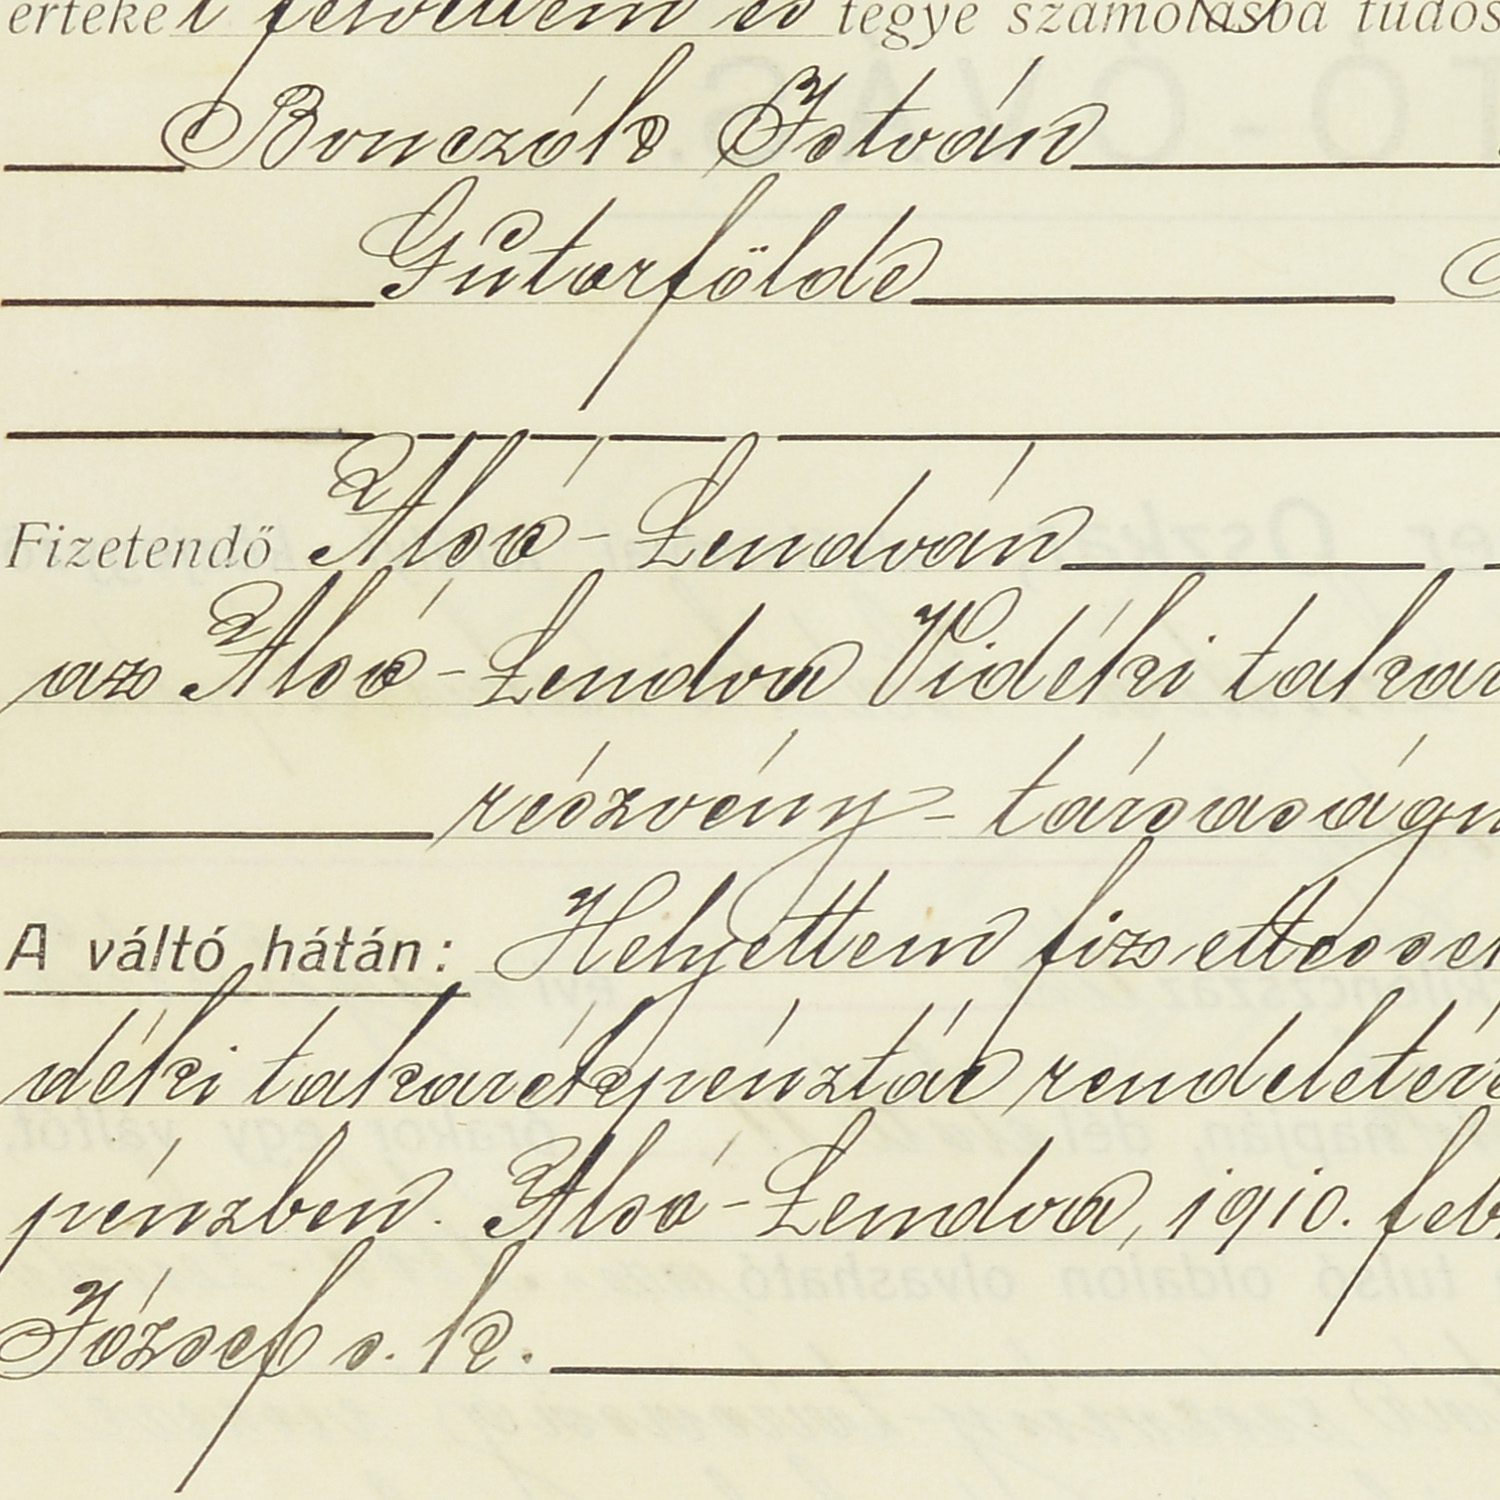 értéket felvettem és tegye számolásba tudós
Bonczók István
Gutorfölde
Fizetendő Alsó-Lendván
az Alsó-Lendva Vidéki takar
részvény-társaságn
A váltó hátán: Helyettem fizettesse
déki takarékpénztár rendeletére
pénzben. Alsó-Lendva, 1910. feb
József s. k.